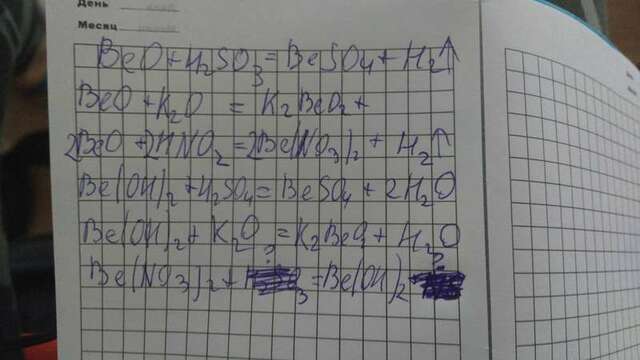 День
Месяц
BeO + H₂SO₃ = BeSO₄ + H₂↑
BeO + K₂O = K₂BeO₂ +
2BeO + 2HNO₂ = 2Be(NO₃)₂ + H₂↑
Be(OH)₂ + H₂SO₄ = BeSO₄ + 2H₂O
Be(OH)₂ + K₂O = K₂BeO₂ + H₂O
? ?
Be(NO₃)₂ + ₃ = Be(OH)₂